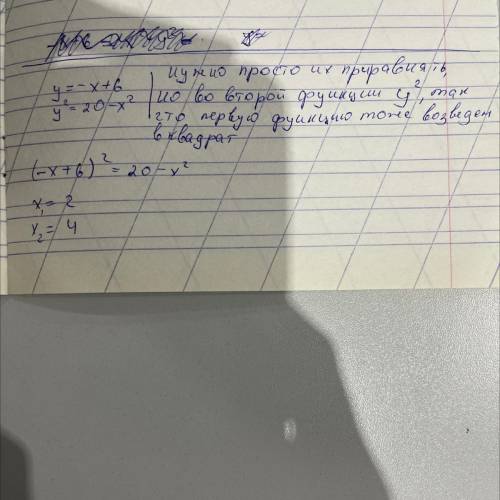 y = -x + 6 | нужно просто их приравнять,
y² = 20 - x² | но во второй функции y², так
что первую функцию тоже возведем
в квадрат
(-x + 6)² = 20 - x²
x₁ = 2
x₂ = 4